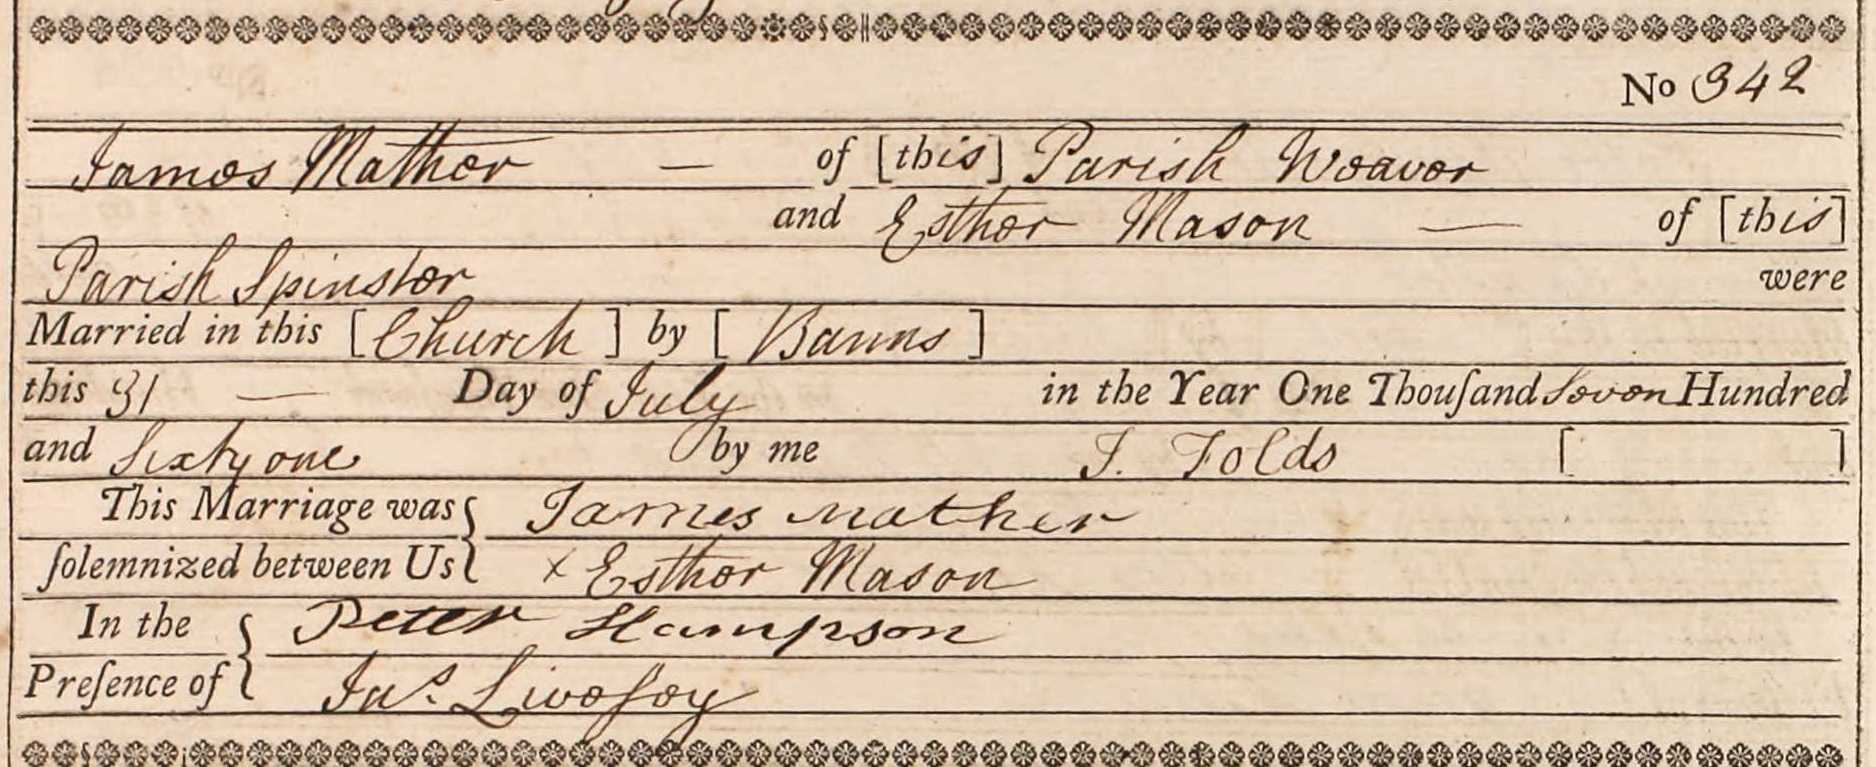 No 342
James Mather — of [this] Parish Weaver
and Esther Mason — of [this]
Parish Spinster were
Married in this [Church] by [Banns]
this 31 — Day of July in the Year One Thouſand Seven Hundred
and Sixty one by me J. Folds [ ]
This Marriage was { James Mather
ſolemnized between Us { x Esther Mason
In the { Peter Hampson
Preſence of { Jas. Liveſey